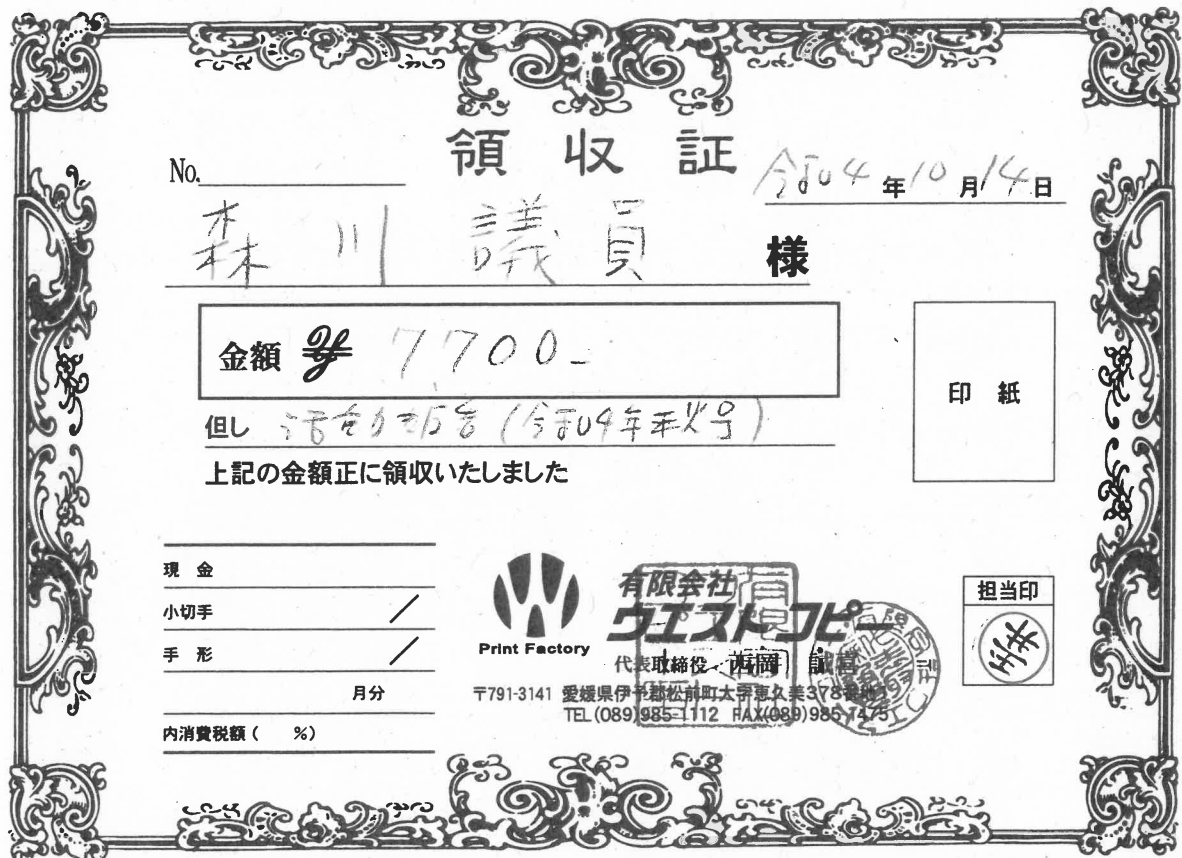 領収証
No.
令和4年10月14日
森川 議員 様
金額 ¥ 7700-
但し 活動報告(令和4年秋号)
上記の金額正に領収いたしました
印紙
現金
小切手 /
手形 /
月分
内消費税額( %)
Print Factory
有限会社
ウエストコピー
代表取締役 西岡
〒791-3141 愛媛県伊予郡松前町大字恵久美378番地
TEL(089)985-1112 FAX(089)985-7475
担当印